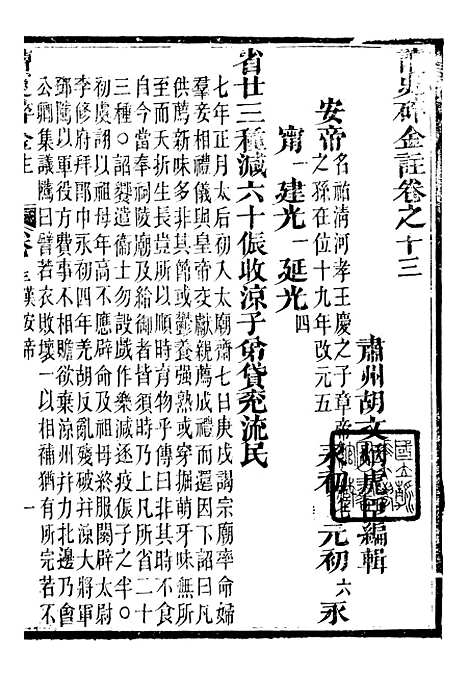 讀史碎金註卷之十三
肅州胡文炳虎臣編輯
安帝名祜清河孝王慶之子章帝
之孫在位十九年改元五永初元初六永
甯一建光一延光四
省廿三種減六十倀收涼子弟貸兖流民
七年正月太后初入太廟齋七日庚戌謁宗廟率命婦
羣妾相禮儀與皇帝交獻親薦成禮而還因下詔曰凡
供薦新味多非其節或鬱養強熟或穿掘萌牙味無所
至而夭折生長豈所以順時育物乎傳曰非其時不食
自今當奉祠陵廟及給御者皆須時乃上凡所省二十
三種〇詔饗遣衞士勿設戲作樂減逐疫倀子之半〇
初虞詡以祖母年高不應辟命及祖母終服闋辟太尉
李修府拜郎中永初四年羌胡反亂殘破并涼大將軍
鄧騭以軍役方費事不相贍欲棄涼州并力北邊乃會
公卿集議騭曰譬若衣敗壞一以相補猶有所完若不
讀史碎金註 卷十三漢安帝 一